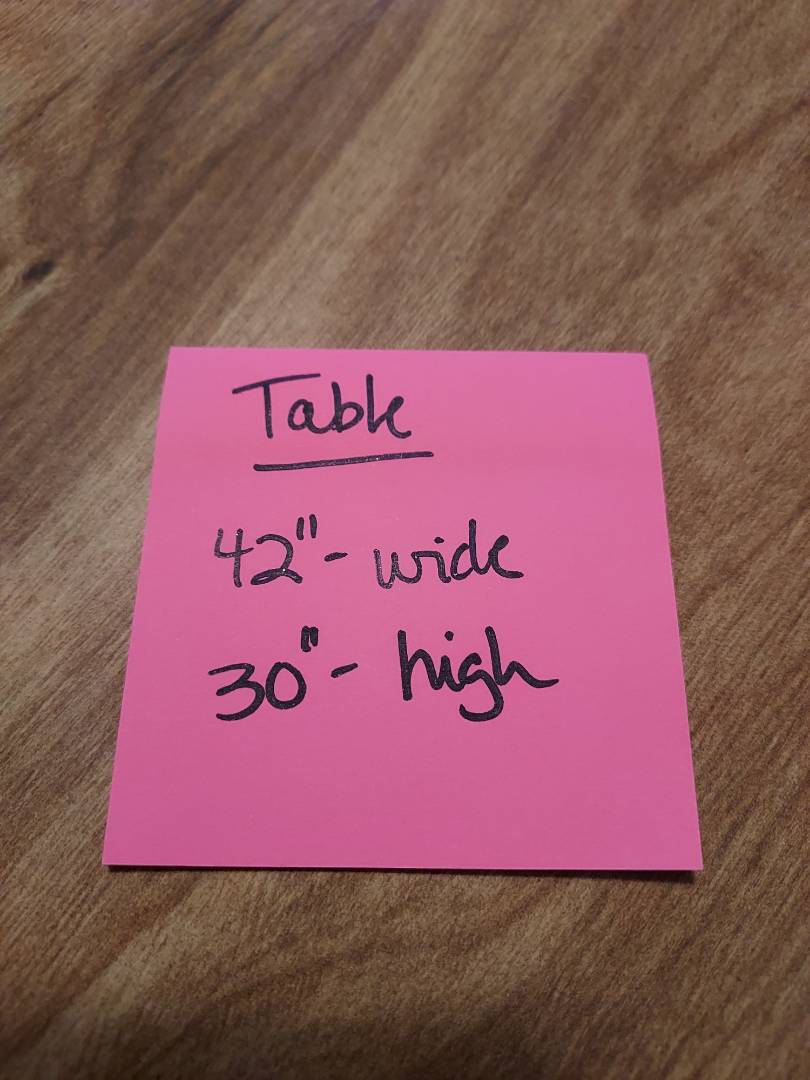 Table
42"- wide
30"- high